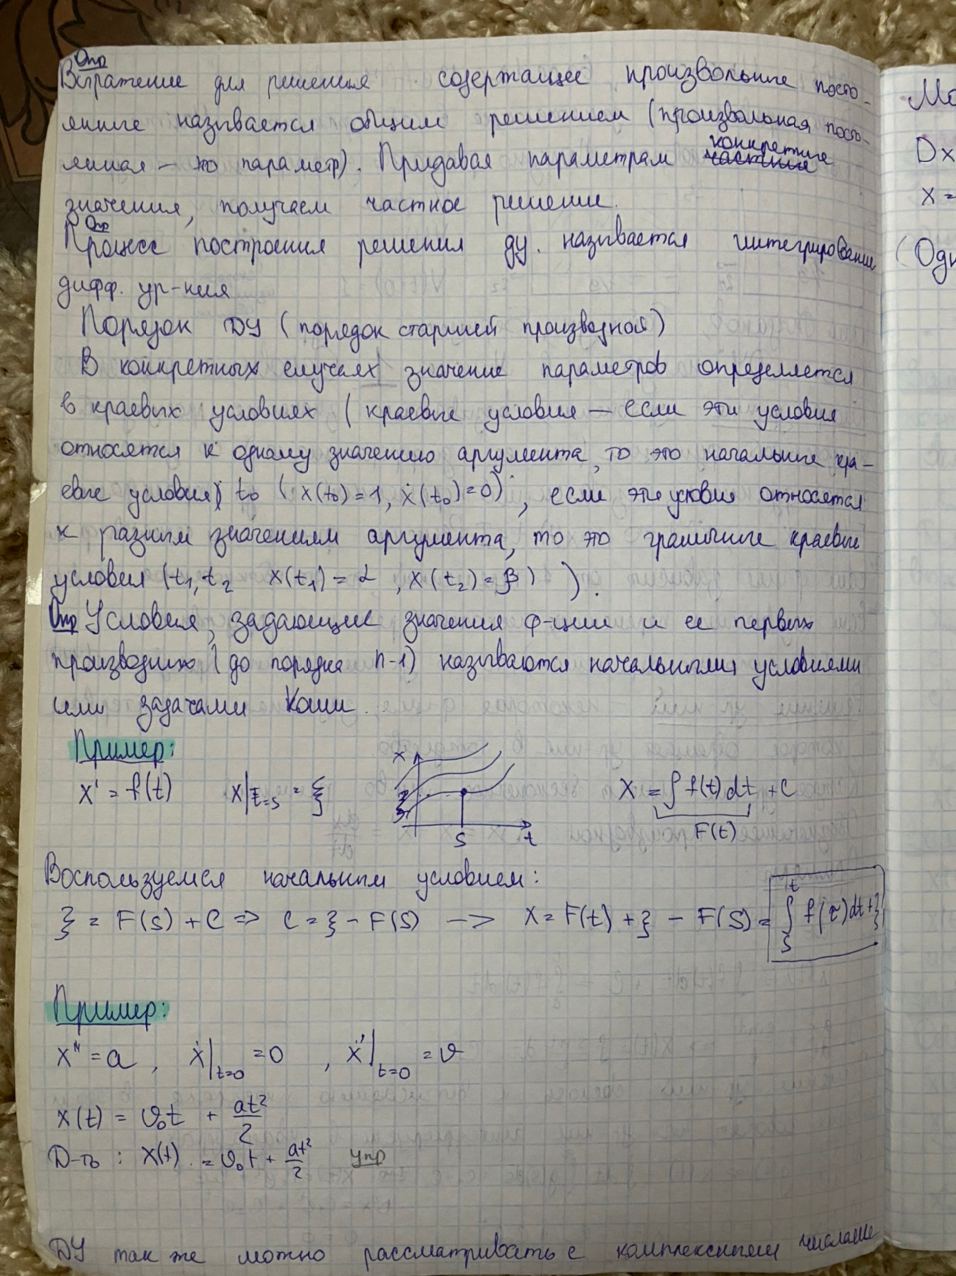 Опр
Выражение для решения содержащее произвольные посто-
янные называется общим решением (произвольная посто-
янная – это параметр). Придавая параметрам конкретные
значения, получаем частное решение.
Опр
Процесс построения решения ду. называется интегрирование
дифф. ур-ния
Порядок ДУ (порядок старшей производной)
В конкретных случаях значение параметров определяется
в краевых условиях (краевые условия – если эти условия
относятся к одному значению аргумента, то это начальные кра-
евые условия) t₀ (x(t₀)=1, ẋ(t₀)=0), если эти условия относятся
к разным значениям аргумента, то это граничные краевые
условия (t₁, t₂ x(t₁)=α, x(t₂)=β)).
Опр Условия, задающие значения ф-ции и ее первых
производных (до порядка n-1) называются начальными условиями
или задачами Коши.
Пример:
x' = f(t) x|t=s = ξ x t s ξ x = ∫ f(t)dt + c
F(t)
Воспользуемся начальным условием:
ξ = F(s) + C => C = ξ - F(s) –> x = F(t) + ξ - F(s) = ∫ₛᵗ f(τ)dτ + ξ
Пример:
x'' = a , x|t=0 = 0 , x'|t=0 = v
x(t) = v₀t + at²/2
Д-ть : x(t) = v₀t + at²/2 упр
ДУ так же можно рассматривать с комплексными числами
Dx
x =
(Одн